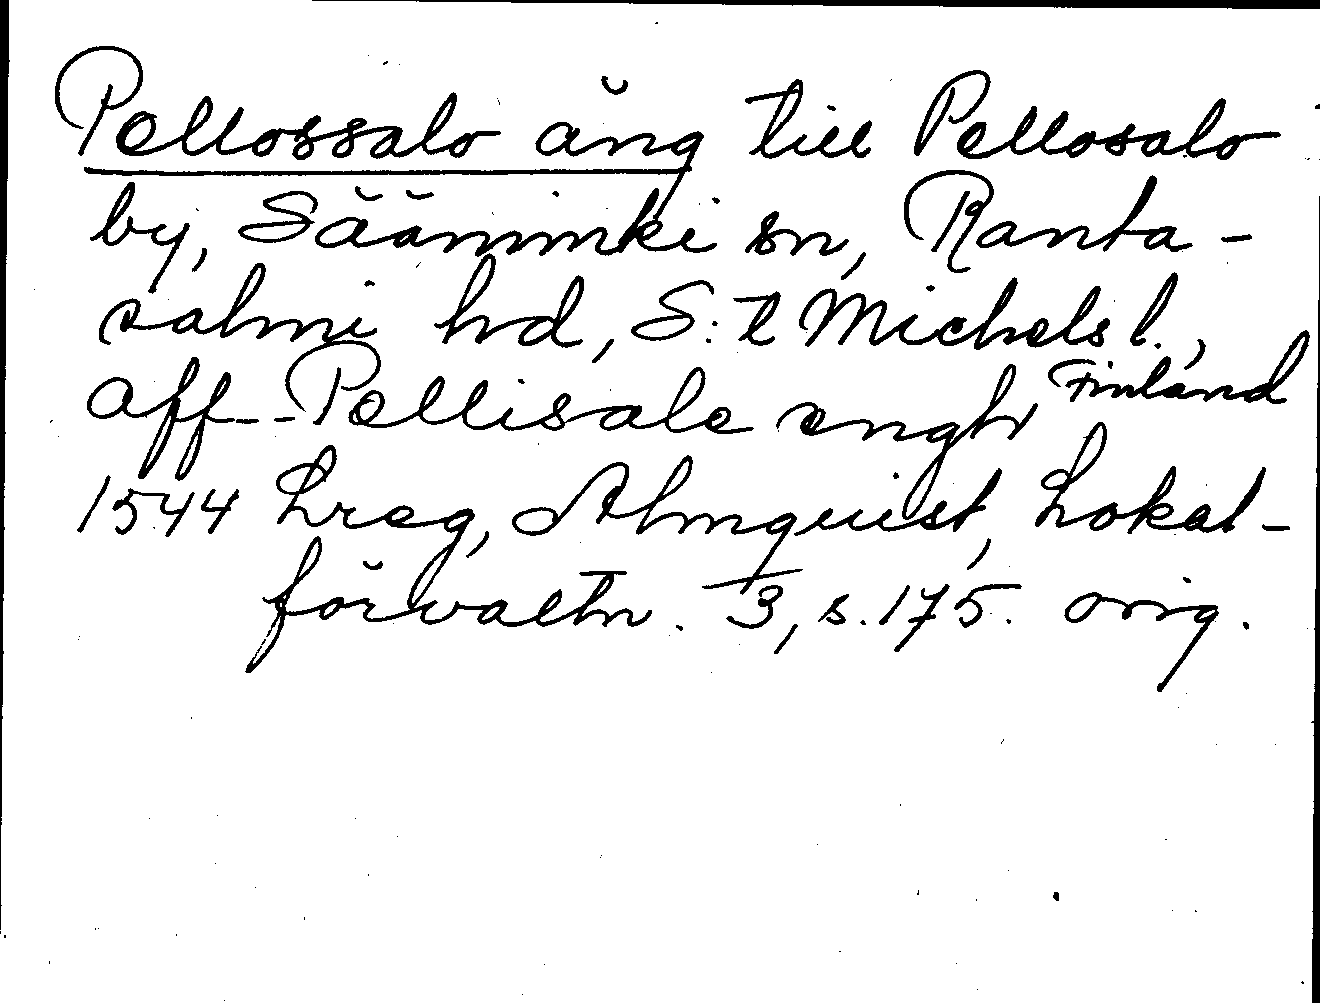 Pellossalo äng till Pellosalo
by, Sääminki sn, Ranta-
salmi hd, S:t Michels l.,
aff - - Pellisale engh, Finland
1544 Lreg, Almquist, Lokal-
förvaltn. 3, s. 175. orig.